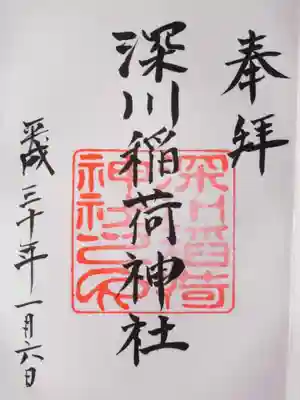 奉拝
深川稲荷神社
平成三十年一月六日
深川稲荷
神社之印